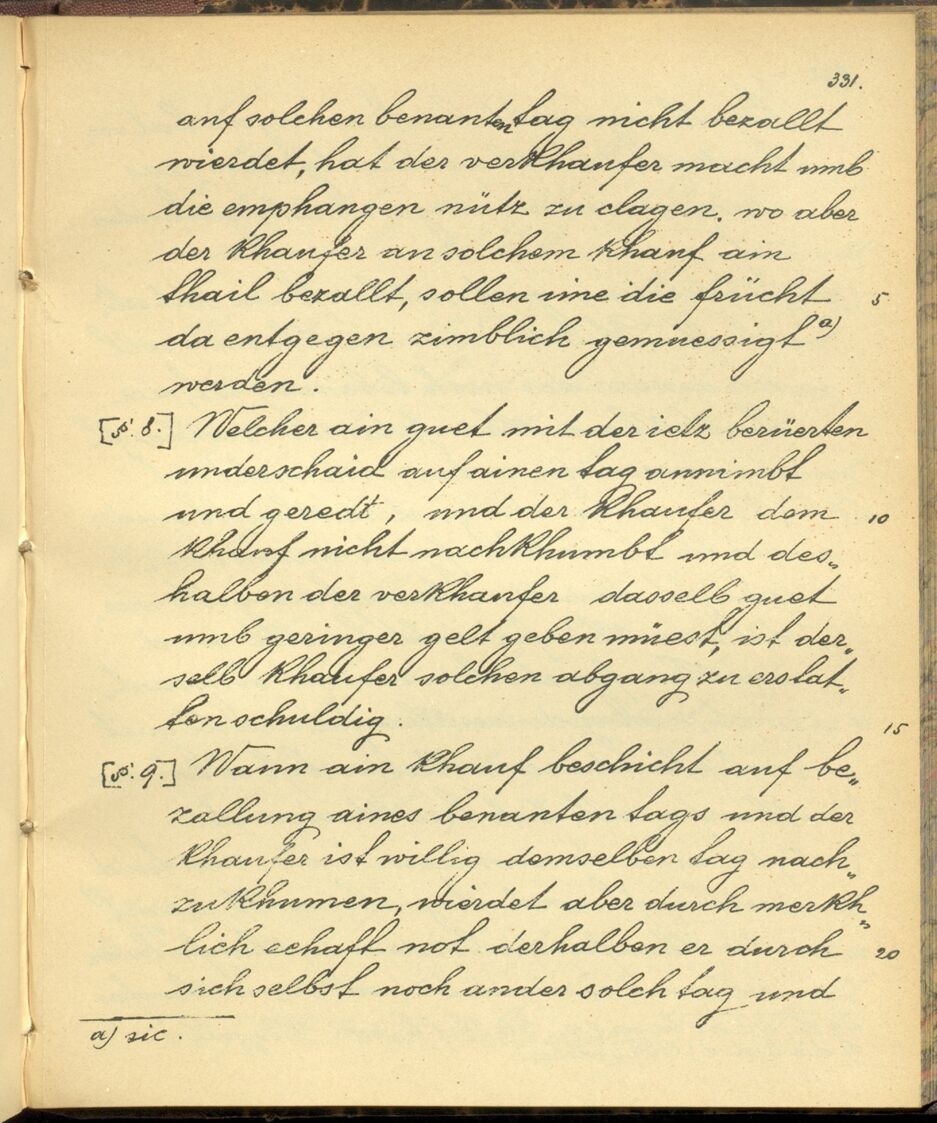 331.
auf solchen benanten tag nicht bezallt
wierdet, hat der verkhaufer macht umb
die emphangen nütz zu clagen. wo aber
der khaufer an solchem khauf ain
thail bezallt, sollen ime die frücht 5
da entgegen zimblich gemuessigt a)
werden.
[§. 8.] Welcher ain guet mit der ietz berüerten
underschaid auf ainen tag annimbt
und geredt, und der khaufer dem 10
khauf nicht nachkhumbt und des„
halben der verkhaufer dasselb guet
umb geringer gelt geben müest, ist der„
selb khaufer solchen abgang zu erstat„
ten schuldig. 15
[§. 9.] Wann ain khauf beschicht auf be„
zallung aines benanten tags und der
khaufer ist willig demselben tag nach„
zukhumen, wierdet aber durch merkh„
lich eehaft not derhalben er durch 20
sich selbst noch ander solch tag und
a) sic.